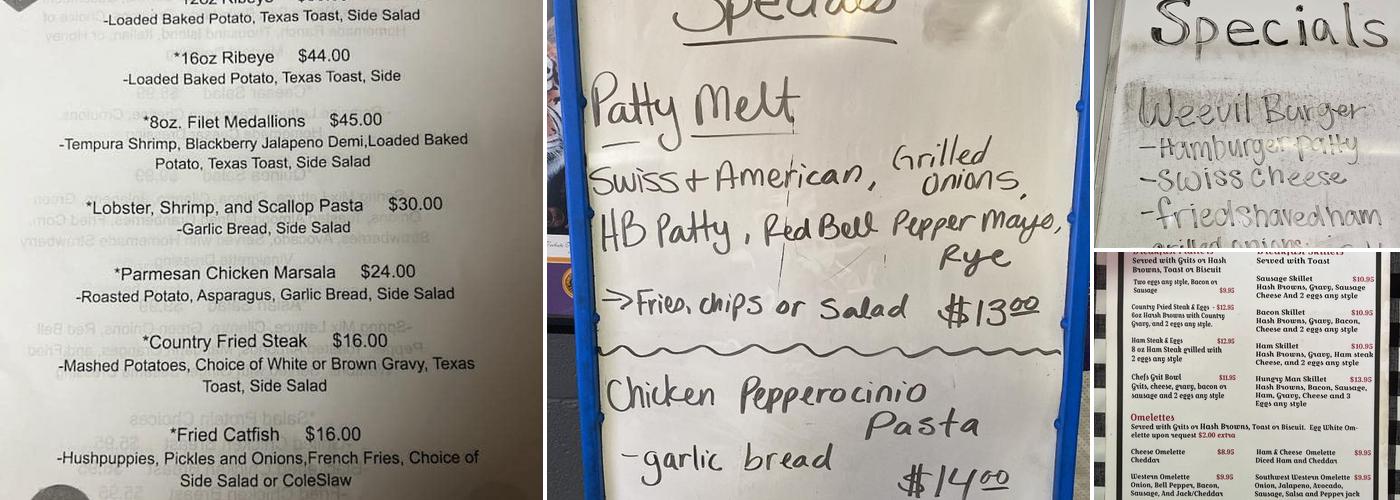 -Loaded Baked Potato, Texas Toast, Side Salad
*16oz Ribeye $44.00
-Loaded Baked Potato, Texas Toast, Side
*8oz. Filet Medallions $45.00
-Tempura Shrimp, Blackberry Jalapeno Demi,Loaded Baked
Potato, Texas Toast, Side Salad
*Lobster, Shrimp, and Scallop Pasta $30.00
-Garlic Bread, Side Salad
*Parmesan Chicken Marsala $24.00
-Roasted Potato, Asparagus, Garlic Bread, Side Salad
*Country Fried Steak $16.00
-Mashed Potatoes, Choice of White or Brown Gravy, Texas
Toast, Side Salad
*Fried Catfish $16.00
-Hushpuppies, Pickles and Onions,French Fries, Choice of
Side Salad or ColeSlaw
Specials
Patty Melt
Swiss + American, Grilled
Onions,
HB Patty, Red Bell Pepper Mayo,
Rye
→Fries, chips or Salad $13.00
Chicken Pepperocinio
Pasta
-garlic bread
$14.00
Specials
Weevil Burger
-Hamburger patty
-Swiss cheese
-fried shaved ham
grilled onions
Served with Grits or Hash
Browns, Toast or Biscuit
Two eggs any style, Bacon or
Sausage $9.95
Country Fried Steak & Eggs - $12.95
6oz Harsh Browns with Country
Gravy, and 2 eggs any style.
Ham Steak & Eggs $12.95
8 oz Ham Steak grilled with
2 eggs any style
Chefs Grit Bowl $11.95
Grits, cheese, gravy, bacon or
sausage and 2 eggs any style
Served with Toast
Sausage Skillet $10.95
Hash Browns, Gravy, Sausage
Cheese And 2 eggs any style
Bacon Skillet $10.95
Hash Browns, Gravy, Bacon,
Cheese and 2 eggs any style
Ham Skillet $10.95
Hash Browns, Gravy, Ham steak
Cheese, and 2 eggs any style
Hungry Man Skillet $13.95
Hash Browns, Bacon, Sausage,
Ham, Gravy, Cheese and 3
Eggs any style
Omelettes
Served with Grits or Hash Browns, Toast or Biscuit. Egg White Om-
elette upon request $2.00 extra
Cheese Omelette $8.95
Cheddar
Western Omelette $9.95
Onion, Bell Pepper, Bacon,
Sausage, And Jack/Cheddar
Ham & Cheese Omelette $9.95
Diced Ham and Cheddar
Southwest Western Omelette $9.95
Onion, Jalapeno, Avocado,
Sausage, Salsa and Pepper jack